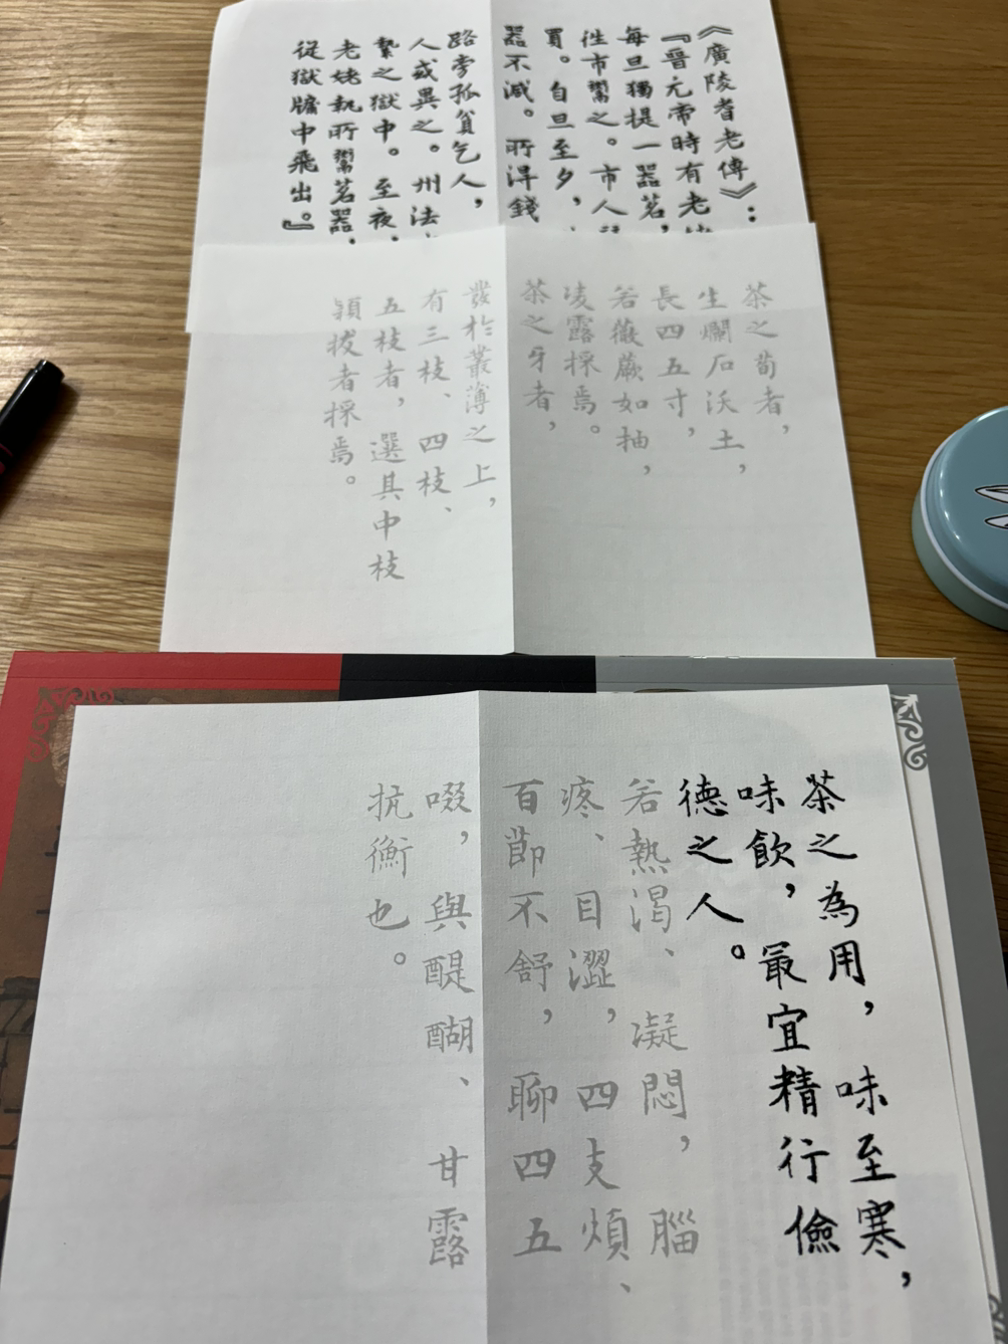 《廣陵耆老傳》：
『晉元帝時有老
每旦獨提一器茗，
往市鬻之。市人
買。自旦至夕，
器不減。所得錢
路旁孤貧乞人，
人或異之。州法
縶之獄中。至夜，
老姥執所鬻茗器，
從獄牖中飛出。』
茶之筍者，
生爛石沃土，
長四五寸，
若薇蕨如抽，
凌露採焉。
茶之牙者，
發於叢薄之上，
有三枝、四枝、
五枝者，選其中枝
穎拔者採焉。
茶之為用，味至寒，
味飲，最宜精行儉
德之人。
若熱渴、凝悶，腦
疼、目澀，四支煩、
百節不舒，聊四五
啜，與醍醐、甘露
抗衡也。